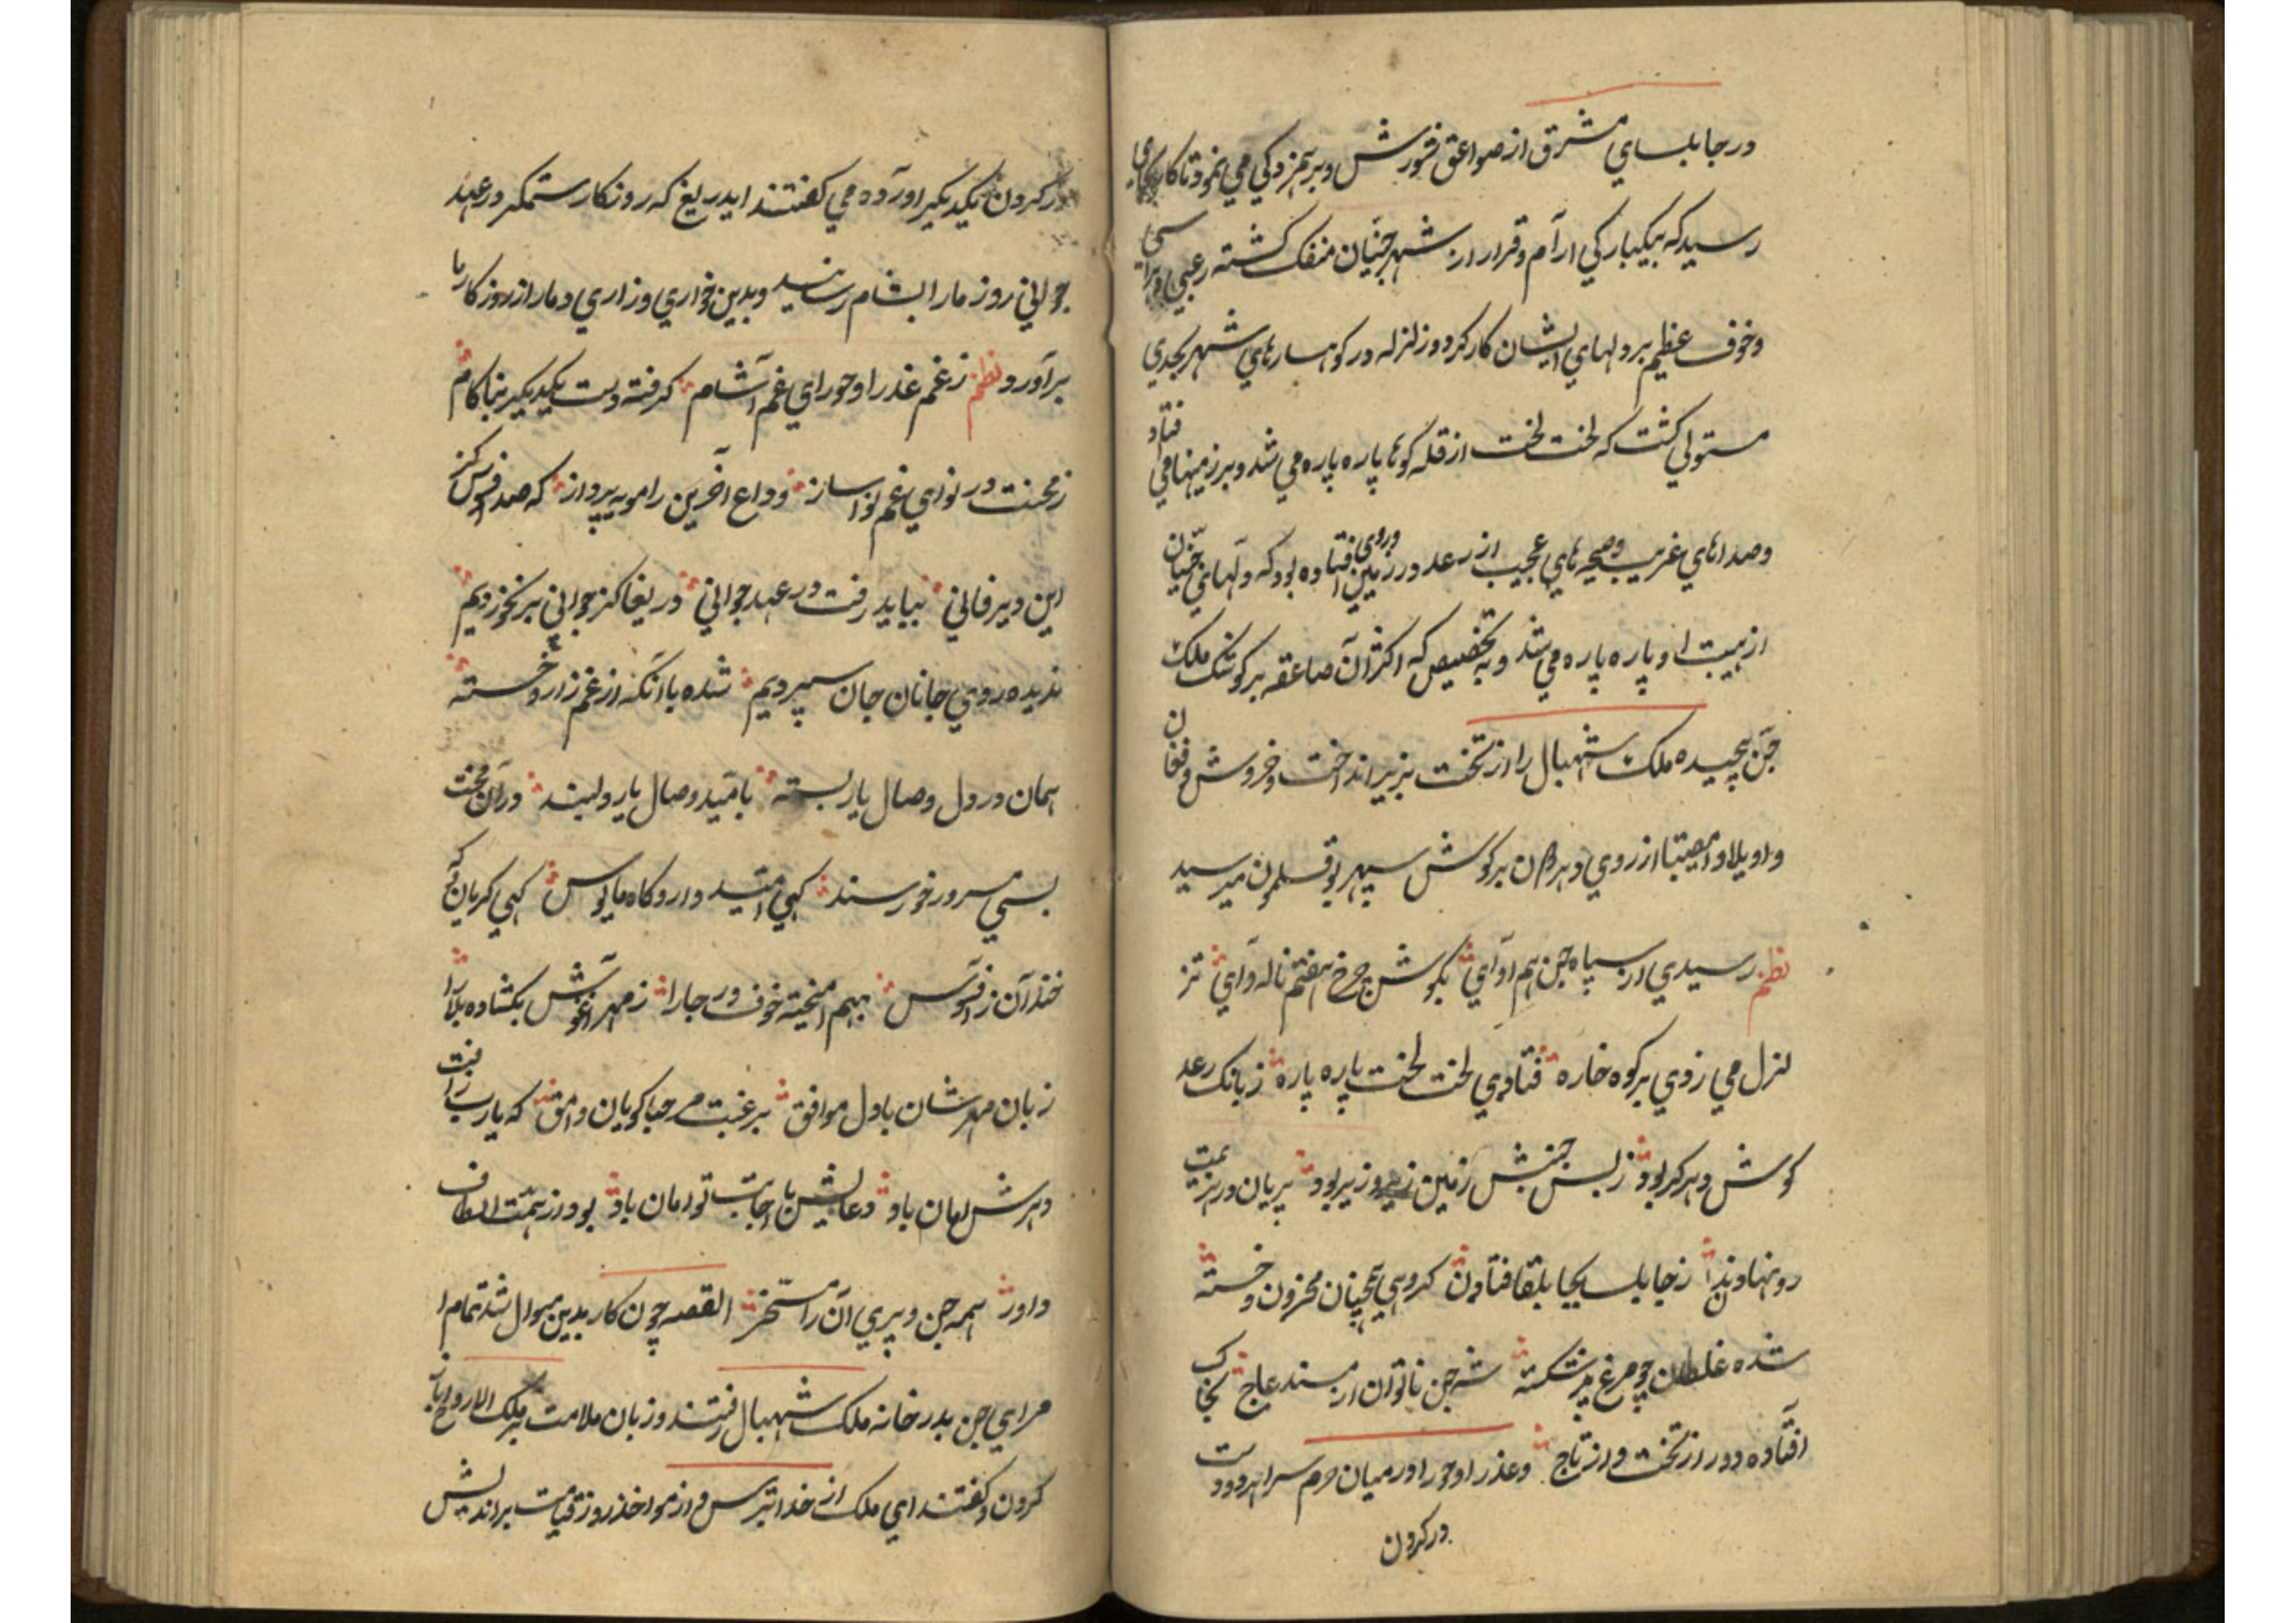 در جابلسای مشرق از صواعق شورش و برهمزدکی می نمود تا کار بجای
رسید که بیکبارکی ارآم و قرار از شهر جنیان منفک کشته رعبی
و خوف عظیم بر دلهای ایشان کار کرد و زلزله در کوهسارهای شهر بحدی
مستولی کشت که لخت لخت از قله کوها پاره پاره می شد و بر زمینها می فتاد
و صداهای غریب و صیحه های عجیب از رعد در روی زمین افتاده بود که دلهای جنیان
از هیبت او پاره پاره می شد و به تخصیص که اکثر آن صاعقه بر کوشک ملک
جن پیچیده ملک شهبال را از تخت بزیر انداخت و خروش و فغان
واویلا و امصیبتا از روی دهر دون بر کوش سپهر بوقلمون میرسید
نظم رسیدی از سپاه جن هم آوای بکوش چرخ هفتم ناله وآی تز
لزل می زدی بر کوه خاره فتادی لخت لخت پاره پاره ز بانک رعد
کوش دهر کر بود ز بس جنبش زمین زیر و زبر بود پریان در هزیمت
رو نهادند ز جابلسا بجابلقا فتادن کروهی همچنان محزون و خسته
شده غلطان چو مرغ پر شکسته شه جن ناتوان از مسند عاج بخاک
افتاده دور از تخت و از تاج وعذرا و حورا در میان حرم سرا هر دو دست
در کردن
در کردن یکدیکر اورده می کفتند ایدریغ که روزکار ستمکر در عهد
جوانی روز مارا بشام رسانید و بدین خواری و زاری دمار از روزکار ما
برآورد نظم ز غم عذرا و حورای غم آشام کرفته دست یکدیکر بناکام
ز محنت در نوای غم نوا ساز وداع آخرین را مویه پرداز که صد افسوس کز
این دیر فانی بباید رفت در عهد جوانی دریغا کز جوانی بر نخوردیم
ندیده روی جانان جان سپردیم شده با آنکه از غم زار و خسته
همان در دل وصال یار بسته بامید وصال یار دلبند در آن محنت
بسی مسرور خورسند کهی امید دار و کاه مایوس کهی کریان که
خندآن ز افسوس بهم امیخته خوف و رجا را ز مهر آغوش بکشاده بلا را
زبان مهرشان با دل موافق برغبت مرحبا کویان وامق که یارب ز آفت
دهرش امان باد دعایش با اجابت توامان باد بود از همت الطاف
داور همه جن و پری آن را مسخر القصه چون کار بدین منوال شد تمام
مرای جن بدر خانه ملک شهبال رفتند و زبان ملامت بر ملک الارواح باز
کردن و کفتند ای ملک از خدا بترس و از مواخذ روز قیامت براندیش